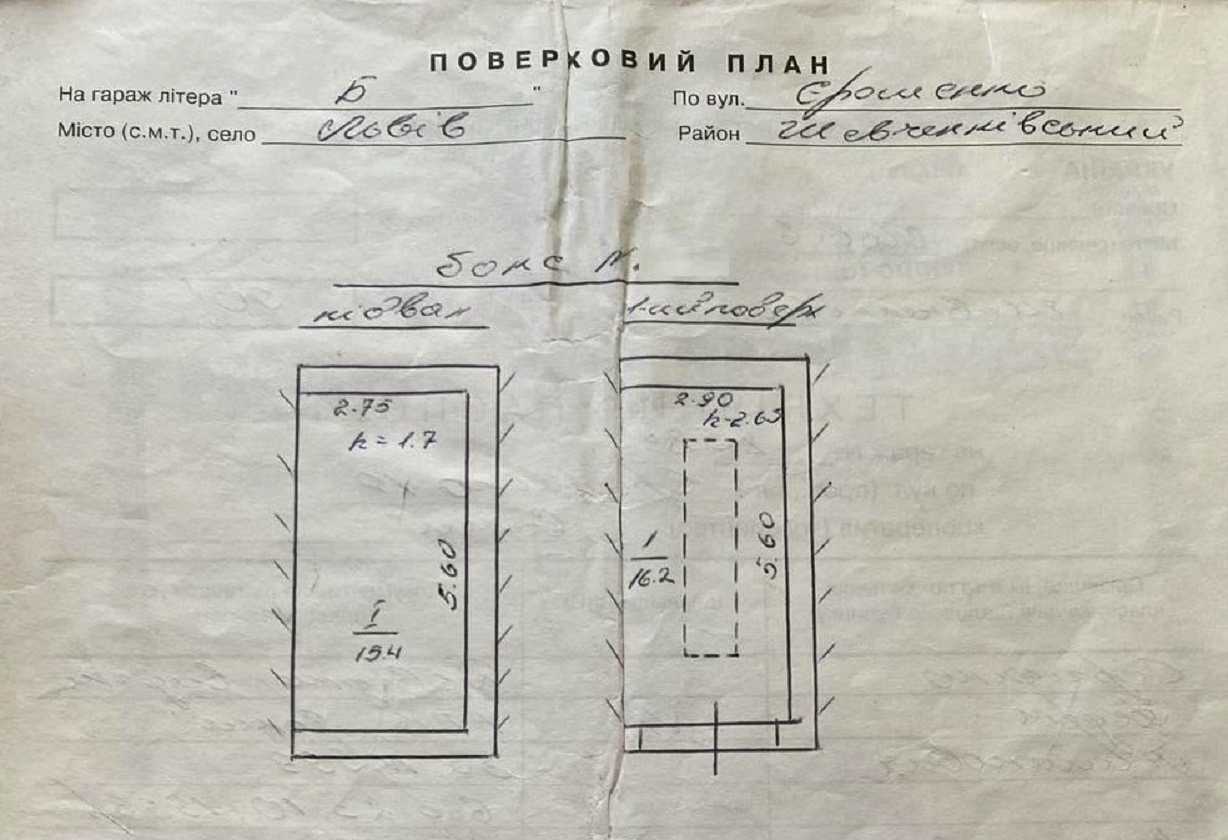 ПОВЕРКОВИЙ ПЛАН
На гараж літера " Б "
По вул. Єрошенко
Місто (с.м.т.), село Львів
Район Шевченківський
бокс N.
підвал
1-ий поверх
2.75
h = 1.7
5.60
I
15.4
2.90
h-2.65
5.60
1
16.2